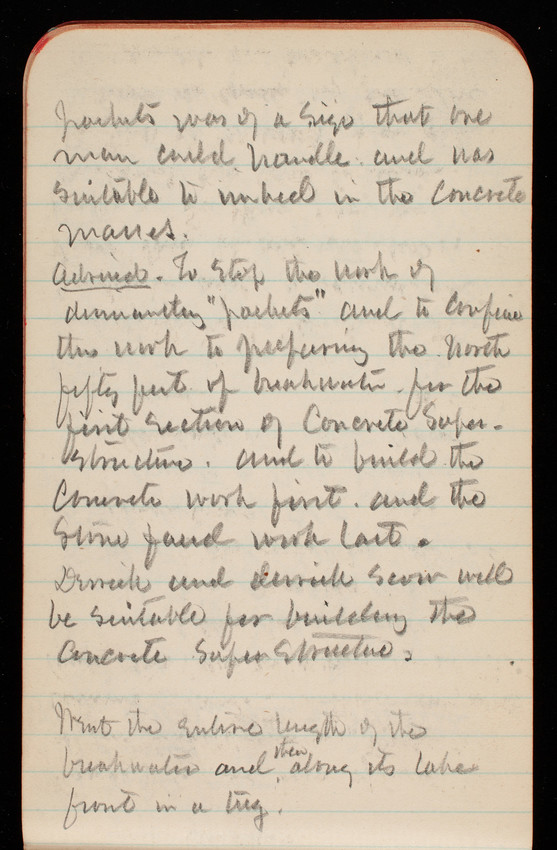 pockets was of a size that one
man could handle and was
suitable to imbed in the Concrete
masses.
Advised. To Stop the work of
dismantling "pockets" and to Confine
this work to preparing the North
fifty feet of breakwater for the
first Section of Concrete Super-
structure. and to build the
Concrete work first. and the
Stone faced work last.
Derrick and derrick scow will
be suitable for building the
Concrete Super Structure.
Went the entire length of the
breakwater and then along its lake
front in a tug.